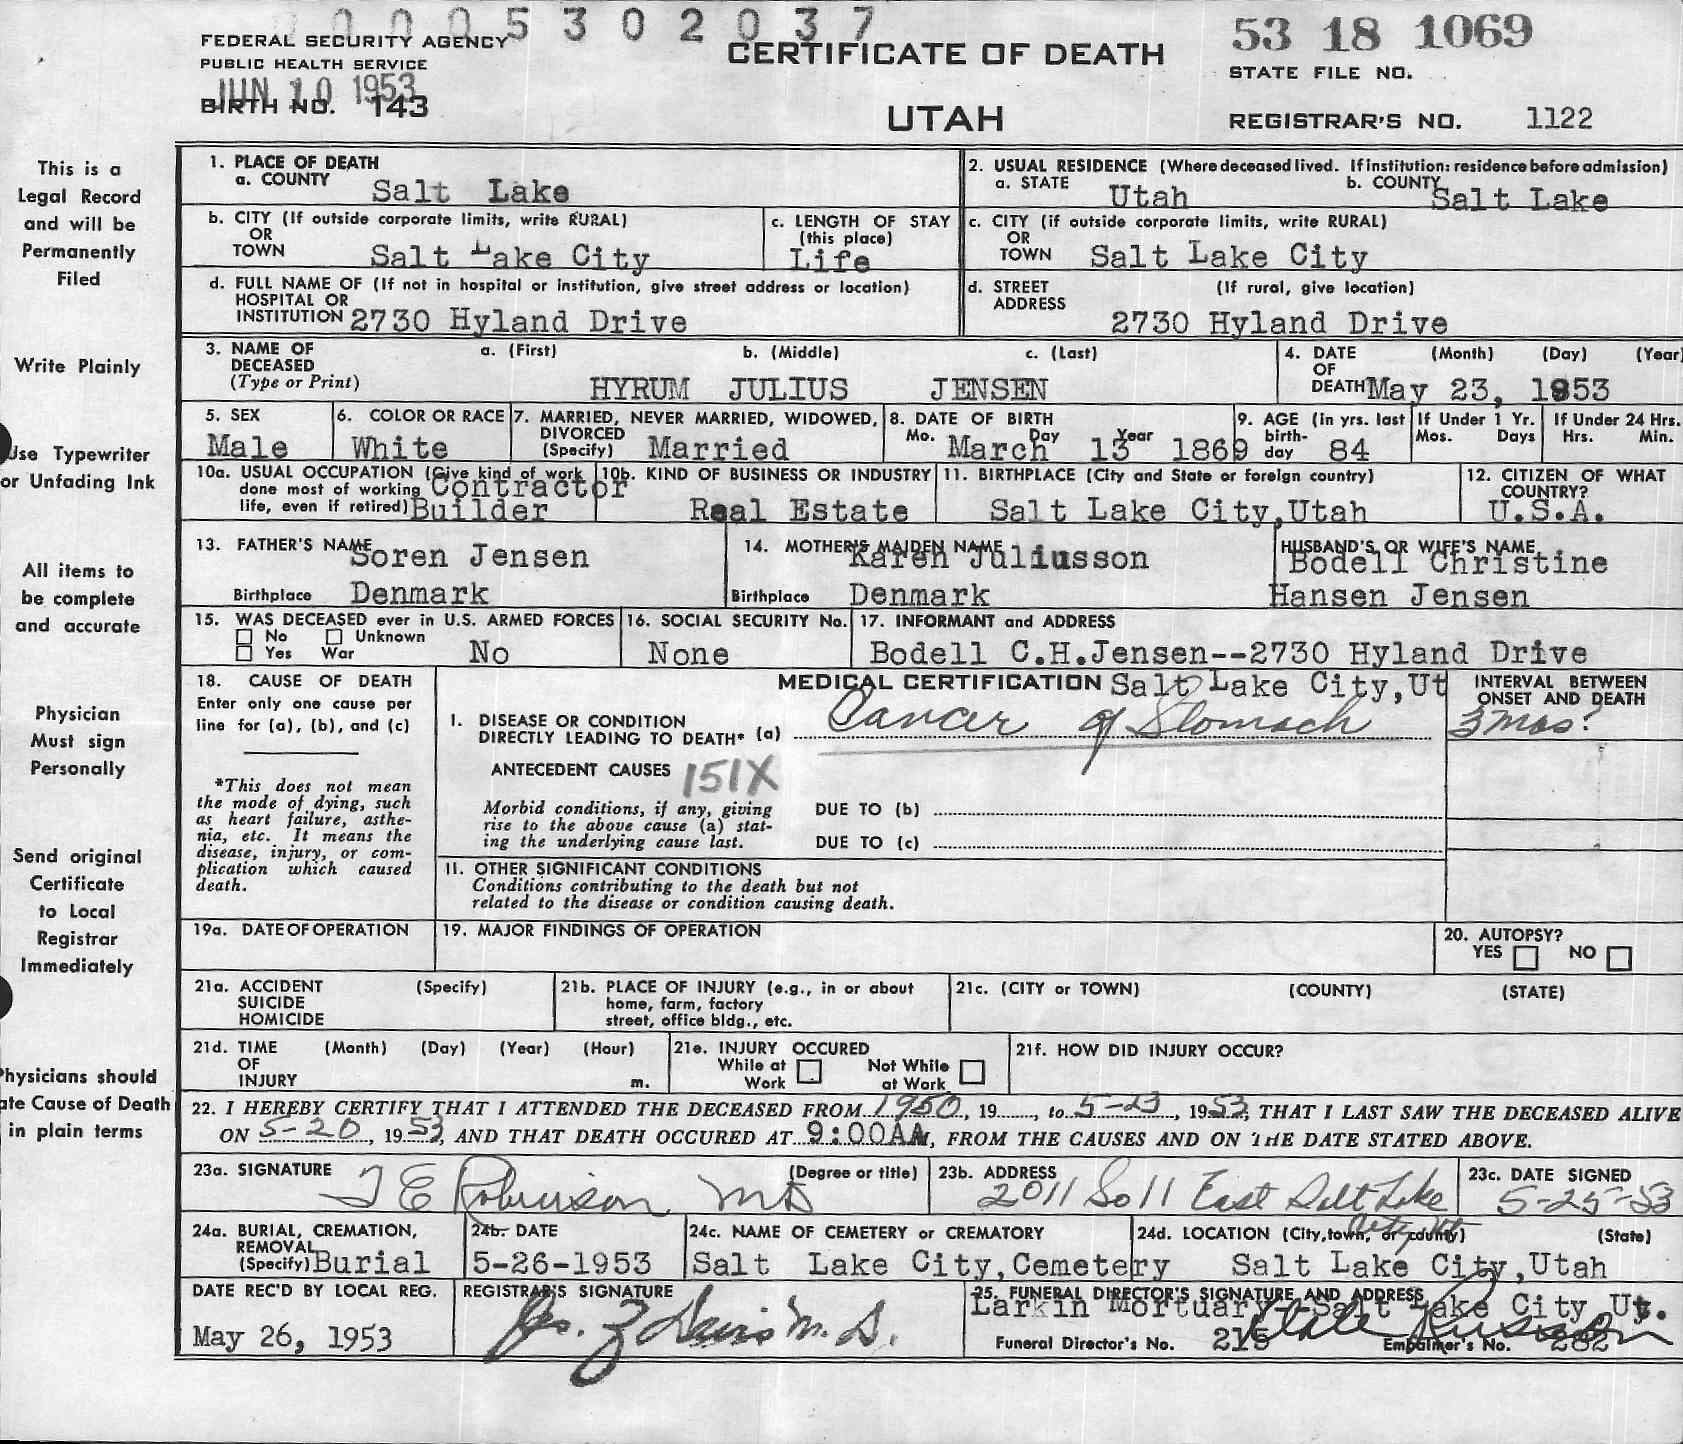 0005302037
FEDERAL SECURITY AGENCY
PUBLIC HEALTH SERVICE
JUN 10 1953
BIRTH NO. 143
CERTIFICATE OF DEATH
UTAH
53 18 1069
STATE FILE NO.
REGISTRAR'S NO. 1122
This is a
Legal Record
and will be
Permanently
Filed
Write Plainly
Use Typewriter
or Unfading Ink
All items to
be complete
and accurate
Physician
Must sign
Personally
Send original
Certificate
to Local
Registrar
Immediately
Physicians should
ate Cause of Death
in plain terms
1. PLACE OF DEATH
a. COUNTY Salt Lake
2. USUAL RESIDENCE (Where deceased lived. If institution: residence before admission)
a. STATE Utah b. COUNTY Salt Lake
b. CITY (If outside corporate limits, write RURAL)
OR
TOWN Salt Lake City
c. LENGTH OF STAY
(this place)
Life
c. CITY (if outside corporate limits, write RURAL)
OR
TOWN Salt Lake City
d. FULL NAME OF (If not in hospital or institution, give street address or location)
HOSPITAL OR
INSTITUTION 2730 Hyland Drive
d. STREET (If rural, give location)
ADDRESS
2730 Hyland Drive
3. NAME OF a. (First) b. (Middle) c. (Last)
DECEASED
(Type or Print) HYRUM JULIUS JENSEN
4. DATE (Month) (Day) (Year)
OF
DEATH May 23, 1953
5. SEX
Male
6. COLOR OR RACE
White
7. MARRIED, NEVER MARRIED, WIDOWED,
DIVORCED
(Specify) Married
8. DATE OF BIRTH
Mo. Day Year
March 13 1869
9. AGE (in yrs. last
birth-
day 84
If Under 1 Yr.
Mos. Days
If Under 24 Hrs.
Hrs. Min.
10a. USUAL OCCUPATION (Give kind of work
done most of working Contractor
life, even if retired) Builder
10b. KIND OF BUSINESS OR INDUSTRY
Real Estate
11. BIRTHPLACE (City and State or foreign country)
Salt Lake City,Utah
12. CITIZEN OF WHAT
COUNTRY?
U.S.A.
13. FATHER'S NAME
Soren Jensen
Birthplace Denmark
14. MOTHER'S MAIDEN NAME
Karen Juliusson
Birthplace Denmark
HUSBAND'S OR WIFE'S NAME
Bodell Christine
Hansen Jensen
15. WAS DECEASED ever in U.S. ARMED FORCES
No Unknown
Yes War No
16. SOCIAL SECURITY No.
None
17. INFORMANT and ADDRESS
Bodell C.H.Jensen--2730 Hyland Drive
18. CAUSE OF DEATH
Enter only one cause per
line for (a), (b), and (c)
*This does not mean
the mode of dying, such
as heart failure, asthe-
nia, etc. It means the
disease, injury, or com-
plication which caused
death.
MEDICAL CERTIFICATION Salt Lake City,Ut
INTERVAL BETWEEN
ONSET AND DEATH
I. DISEASE OR CONDITION
DIRECTLY LEADING TO DEATH* (a) Cancer of Stomach 3 mos?
ANTECEDENT CAUSES 151X
Morbid conditions, if any, giving
rise to the above cause (a) stat-
ing the underlying cause last.
DUE TO (b)
DUE TO (c)
11. OTHER SIGNIFICANT CONDITIONS
Conditions contributing to the death but not
related to the disease or condition causing death.
19a. DATE OF OPERATION
19. MAJOR FINDINGS OF OPERATION
20. AUTOPSY?
YES NO
21a. ACCIDENT (Specify)
SUICIDE
HOMICIDE
21b. PLACE OF INJURY (e.g., in or about
home, farm, factory
street, office bldg., etc.
21c. (CITY or TOWN) (COUNTY) (STATE)
21d. TIME (Month) (Day) (Year) (Hour)
OF
INJURY m.
21e. INJURY OCCURED
While at Not While
Work at Work
21f. HOW DID INJURY OCCUR?
22. I HEREBY CERTIFY THAT I ATTENDED THE DECEASED FROM 1950, 19......, to 5-23, 1953, THAT I LAST SAW THE DECEASED ALIVE
ON 5-20, 1953, AND THAT DEATH OCCURED AT 9:00AM, FROM THE CAUSES AND ON THE DATE STATED ABOVE.
23a. SIGNATURE (Degree or title)
T E Robinson MD
23b. ADDRESS
2011 So 11 East Salt Lake
City Utr
23c. DATE SIGNED
5-25-53
24a. BURIAL, CREMATION,
REMOVAL
(Specify) Burial
24b. DATE
5-26-1953
24c. NAME OF CEMETERY or CREMATORY
Salt Lake City,Cemetery
24d. LOCATION (City, town, or county) (State)
Salt Lake City,Utah
DATE REC'D BY LOCAL REG.
May 26, 1953
REGISTRAR'S SIGNATURE
Davis M. D.
25. FUNERAL DIRECTOR'S SIGNATURE AND ADDRESS
Larkin Mortuary--Salt Lake City Ut.
Funeral Director's No. 215 Embalmer's No. 282